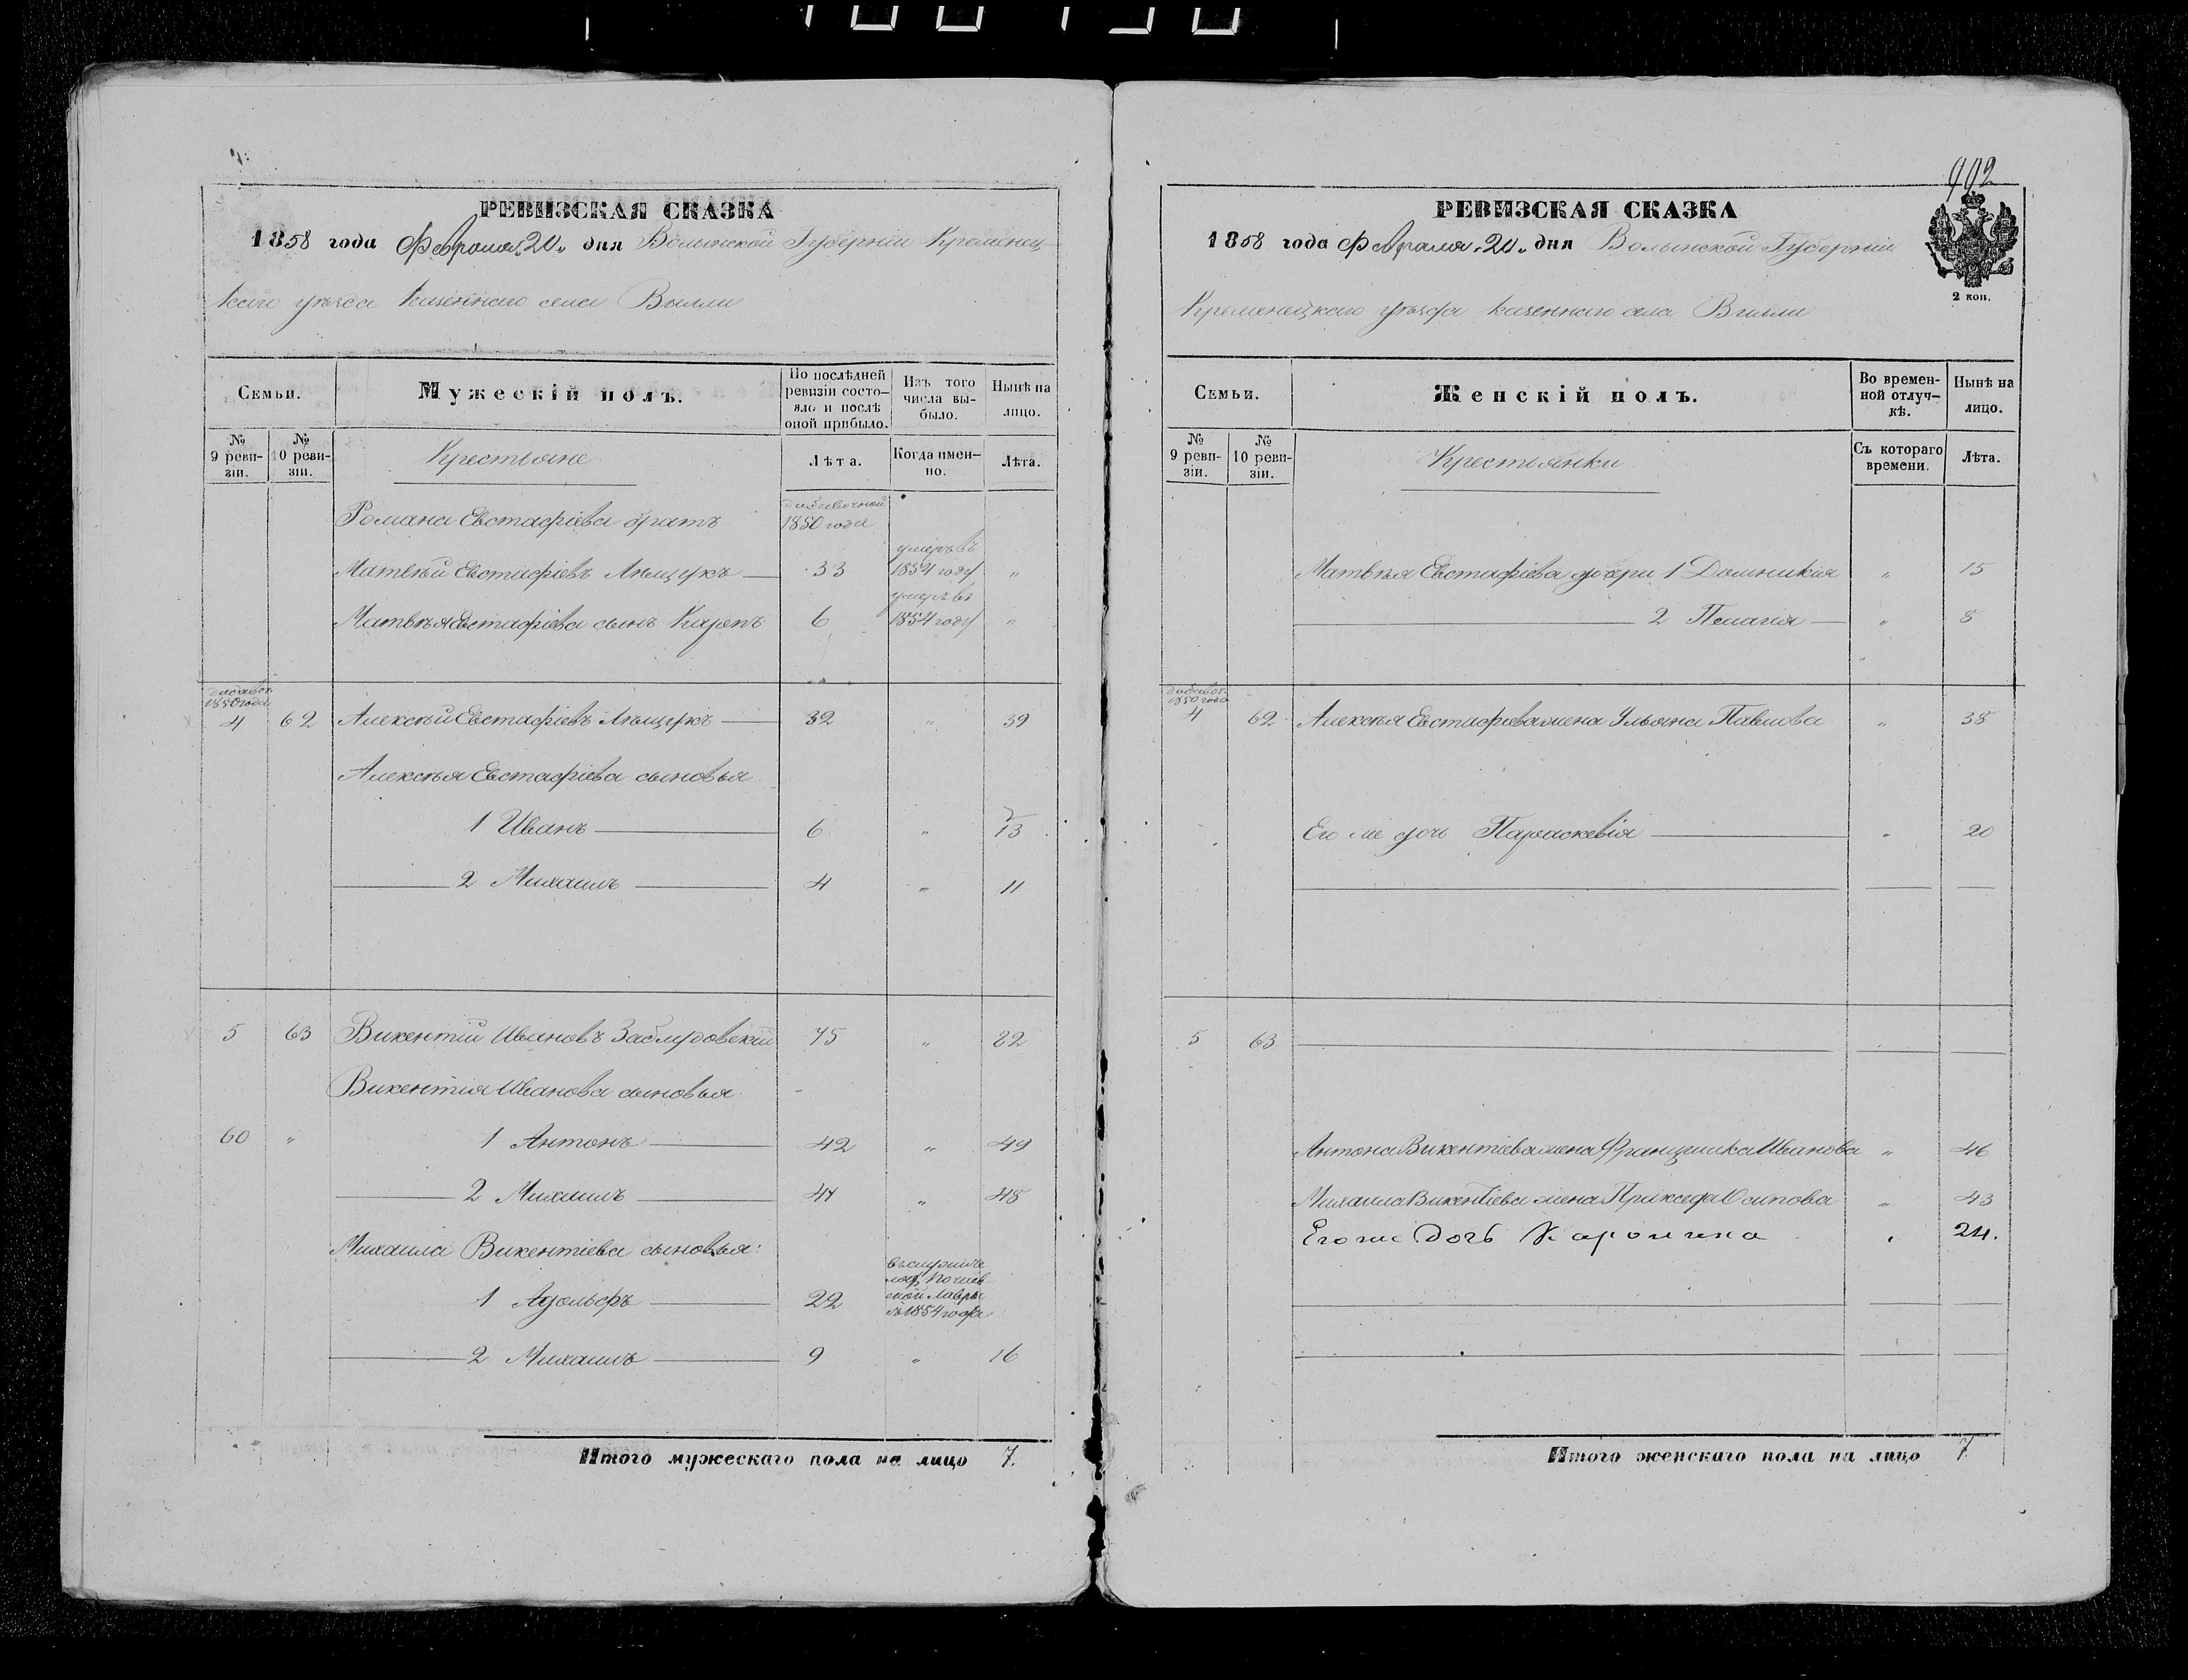 РЕВИЗСКАЯ СКАЗКА
1858 года Февраля „20„ дня Волынской Губерніи Кременец-
каго уѣзда казеннаго села Вилли
Семьи.
Мужескій полъ.
По послѣдней ревизіи состояло и послѣ оной прибыло.
Изъ того числа выбыло.
Нынѣ на лицо.
№ 9 ревизіи.
№ 10 ревизіи.
Крестьяне
Лѣта.
Когда именно.
Лѣта.
Романа Евстафіева братъ
1850 года
Матвѣй Евстафіевъ Лящукъ 33 умеръ въ 1854 году „
Матвѣя Евстафіева сынъ Карпъ 6 умеръ въ 1854 году „
1850 года
4 62 Алексѣй Евстафіевъ Лящукъ 32 „ 39
Алексѣя Евстафіева сыновья
1 Иванъ 6 „ 13
2 Михаилъ 4 „ 11
5 63 Викентій Ивановъ Заблудовскій 75 „ 82
Викентія Иванова сыновья
60 „ 1 Антонъ 42 „ 49
2 Михаилъ 41 „ 48
Михаила Викентіева сыновья:
1 Адольфъ 22 лавры съ 1854 года
2 Михаилъ 9 „ 16
Итого мужескаго пола на лицо 7.
902
РЕВИЗСКАЯ СКАЗКА
1858 года Февраля „20„ дня Волынской Губерніи
Кременецкаго уѣзда казеннаго села Вилли
2 коп.
Семьи.
Женскій полъ.
Во временной отлучкѣ.
Нынѣ на лицо.
№ 9 ревизіи.
№ 10 ревизіи.
Крестьянки
Съ котораго времени.
Лѣта.
Матвѣя Евстафіева дочери 1 Домникія „ 15
2 Пелагія „ 8
1850 года
4 62 Алексѣя Евстафіева жена Ульяна Павлова „ 38
Его же дочь Параскевія „ 20
5 63
Антона Викентіева жена Францишка Иванова „ 46
Михаила Викентіева жена Пракседа Осипова „ 43
Его же дочь Каролина „ 24.
Итого женскаго пола на лицо 7